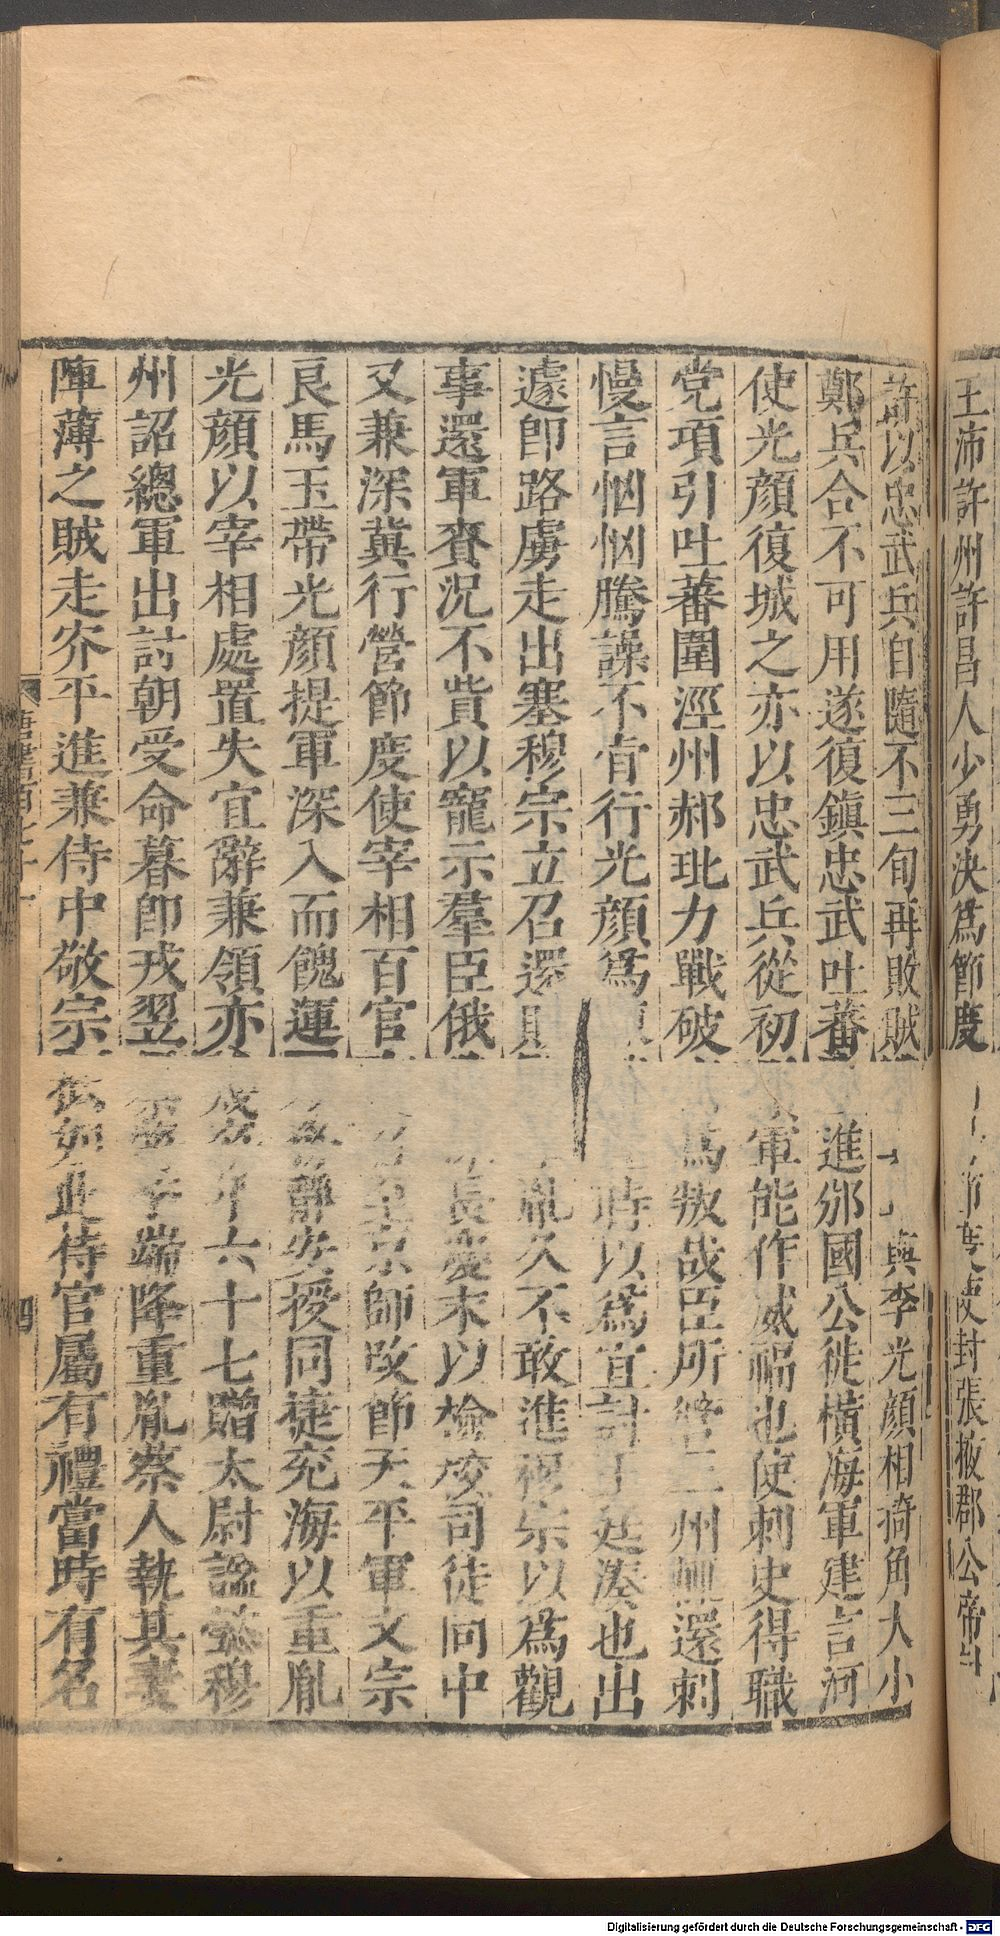 王沛許州許昌人少勇決爲節度使封張掖郡公帝討
許以忠武兵自隨不三旬再敗賊 與李光顔相掎角大小
鄭兵合不可用遂復鎭忠武吐蕃 進邠國公徙橫海軍建言河
使光顔復城之亦以忠武兵從初 軍能作威福也使刺史得職
党項引吐蕃圍涇州郝玼力戰破 爲叛哉臣所管三州 還刺
慢言忷忷騰譟不肯行光顔爲 時以爲宜討王廷湊也出
遽卽路虜走出塞穆宗立召還 胤久不敢進穆宗以爲觀
事還軍賚況不貲以寵示羣臣俄 長慶末以檢校司徒同中
又兼深冀行營節度使宰相百官 至京師改節天平軍文宗
良馬玉帶光顔提軍深入而餽運 節安授同捷兗海以重胤
光顔以宰相處置失宜辭兼領亦 年六十七贈太尉諡懿穆
州詔總軍出討朝受命暮卽戎翌 李端降重胤蔡人執其妻
陣薄之賊走夰平進兼侍中敬宗 如此待官屬有禮當時有名
唐書百七十一
四
Digitalisierung gefördert durch die Deutsche Forschungsgemeinschaft - DFG